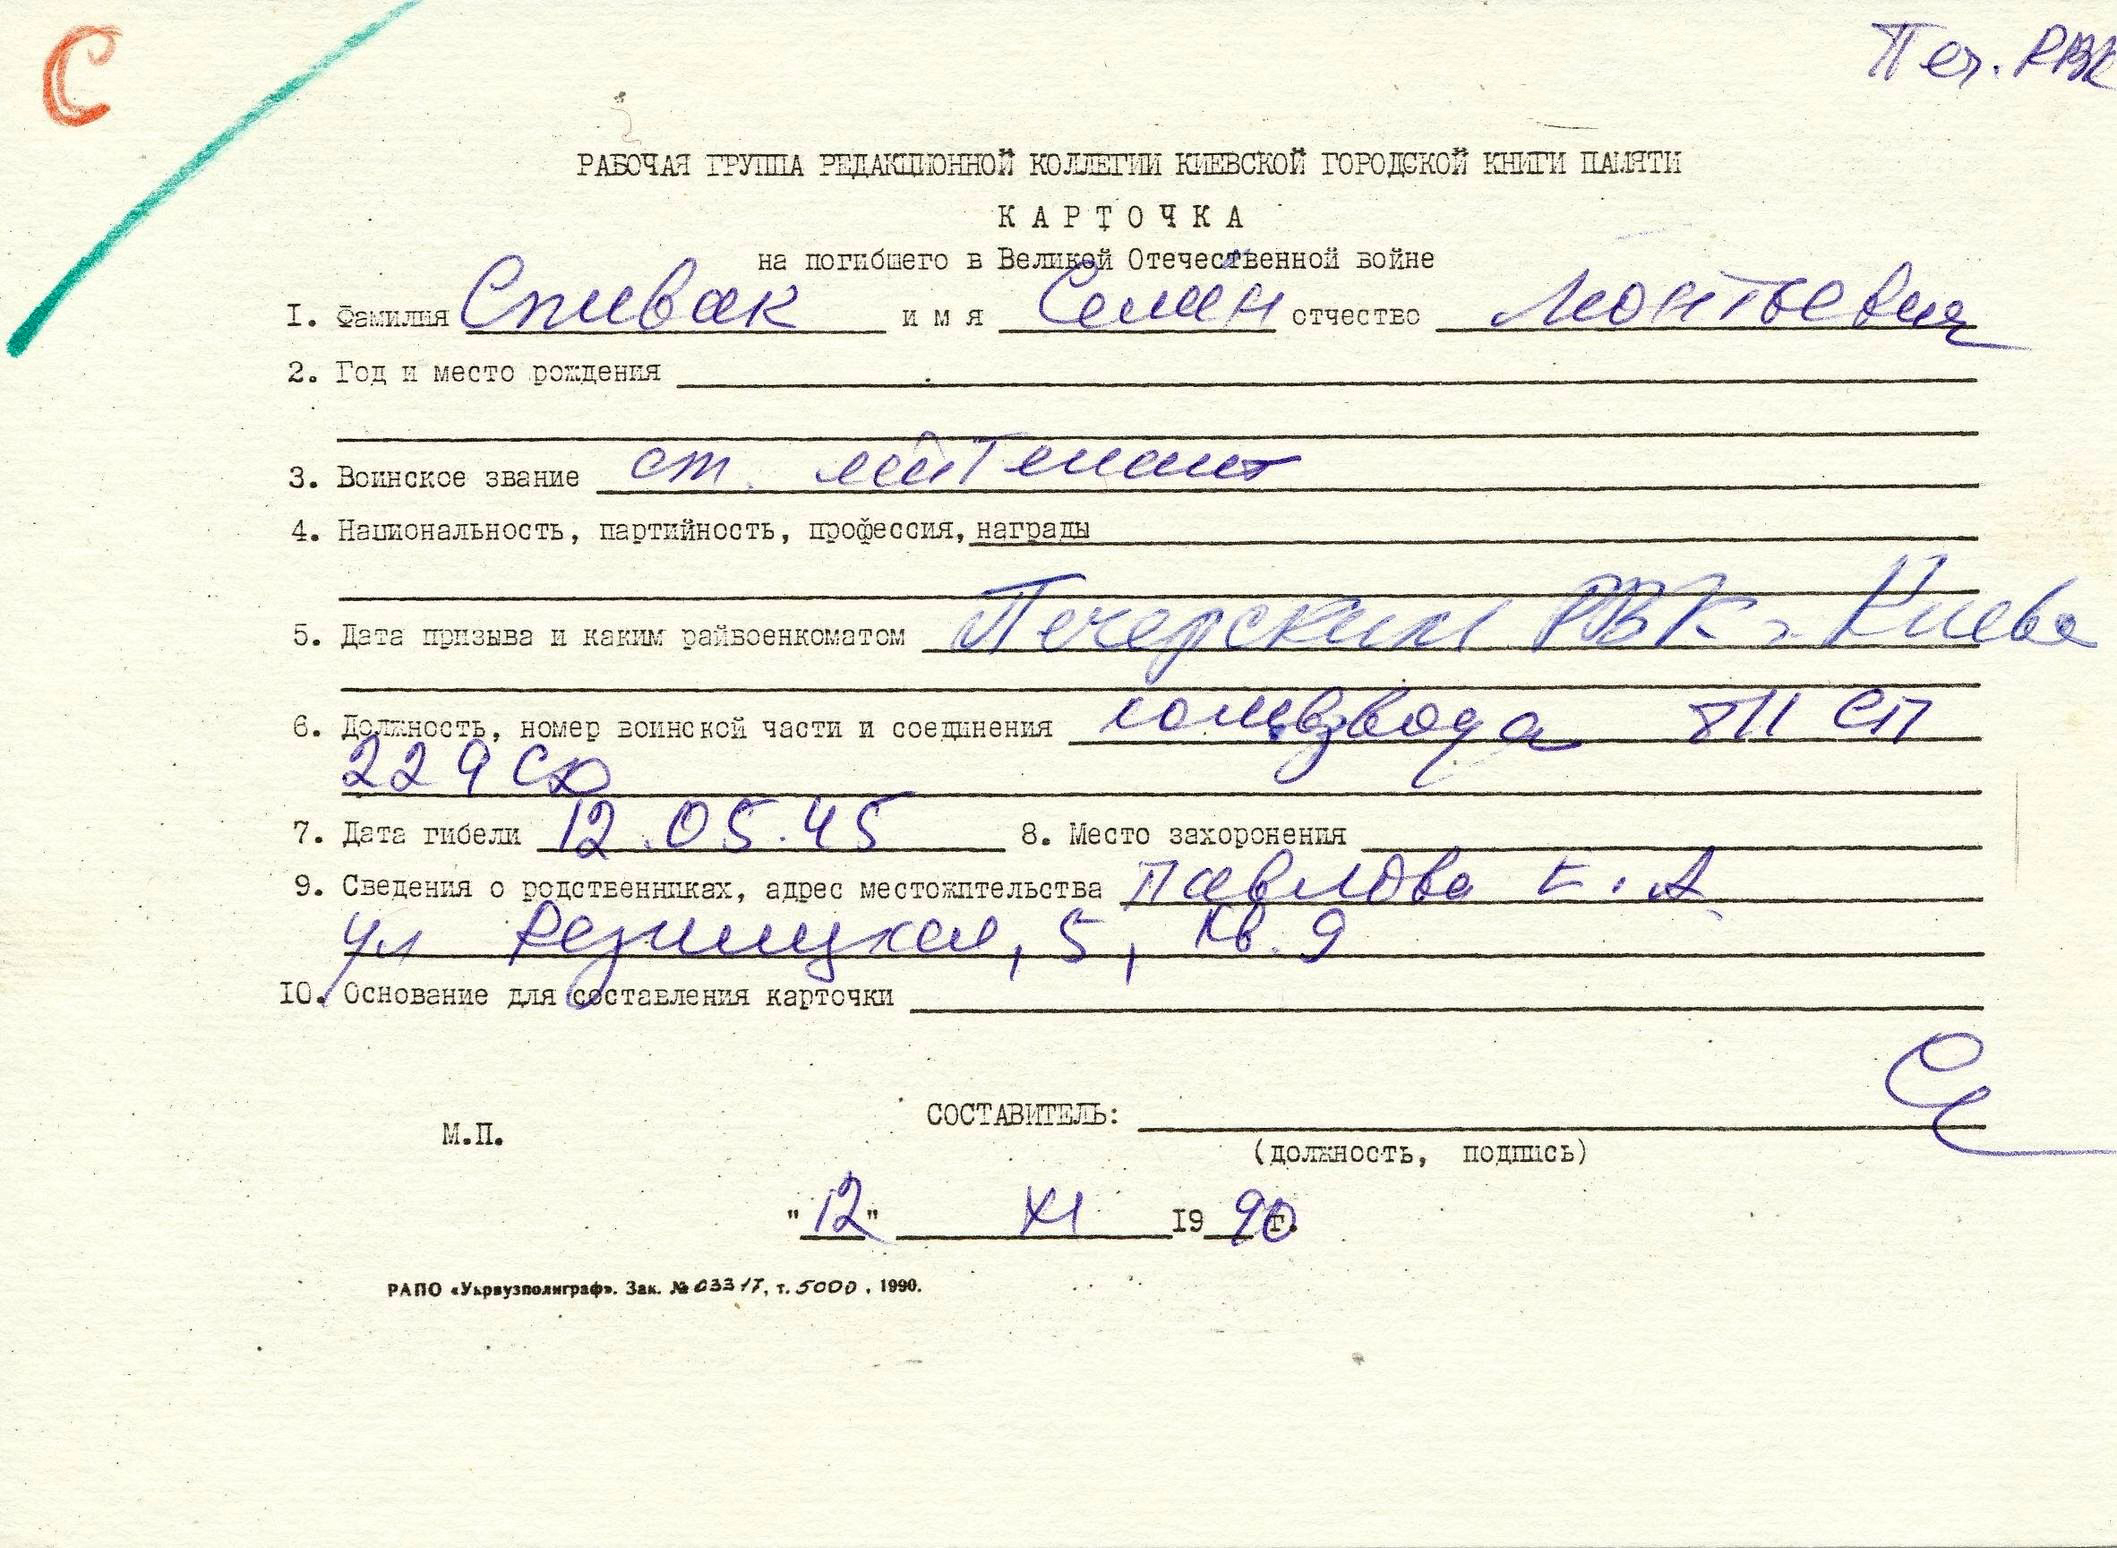 С
Печ. РВК
РАБОЧАЯ ГРУППА РЕДАКЦИОННОЙ КОЛЛЕГИИ КИЕВСКОЙ ГОРОДСКОЙ КНИГИ ПАМЯТИ
КАРТОЧКА
на погибшего в Великой Отечественной войне
1. Фамилия Спивак имя Семён отчество Леонтьевич
2. Год и место рождения
3. Воинское звание ст. лейтенант
4. Национальность, партийность, профессия, награды
5. Дата призыва и каким райвоенкоматом Печерским РВК г. Киева
6. Должность, номер воинской части и соединения комвзвода СП
229 сд
7. Дата гибели 12.05.45 8. Место захоронения
9. Сведения о родственниках, адрес местожительства Павлова Е. А
ул Резницкая, 5, кв. 9
10. Основание для составления карточки
СОСТАВИТЕЛЬ:
М.П.
(должность, подпись)
"12" XI 1990 г.
РАПО «Укрвузполиграф». Зак. № 03317, т. 5000, 1990.